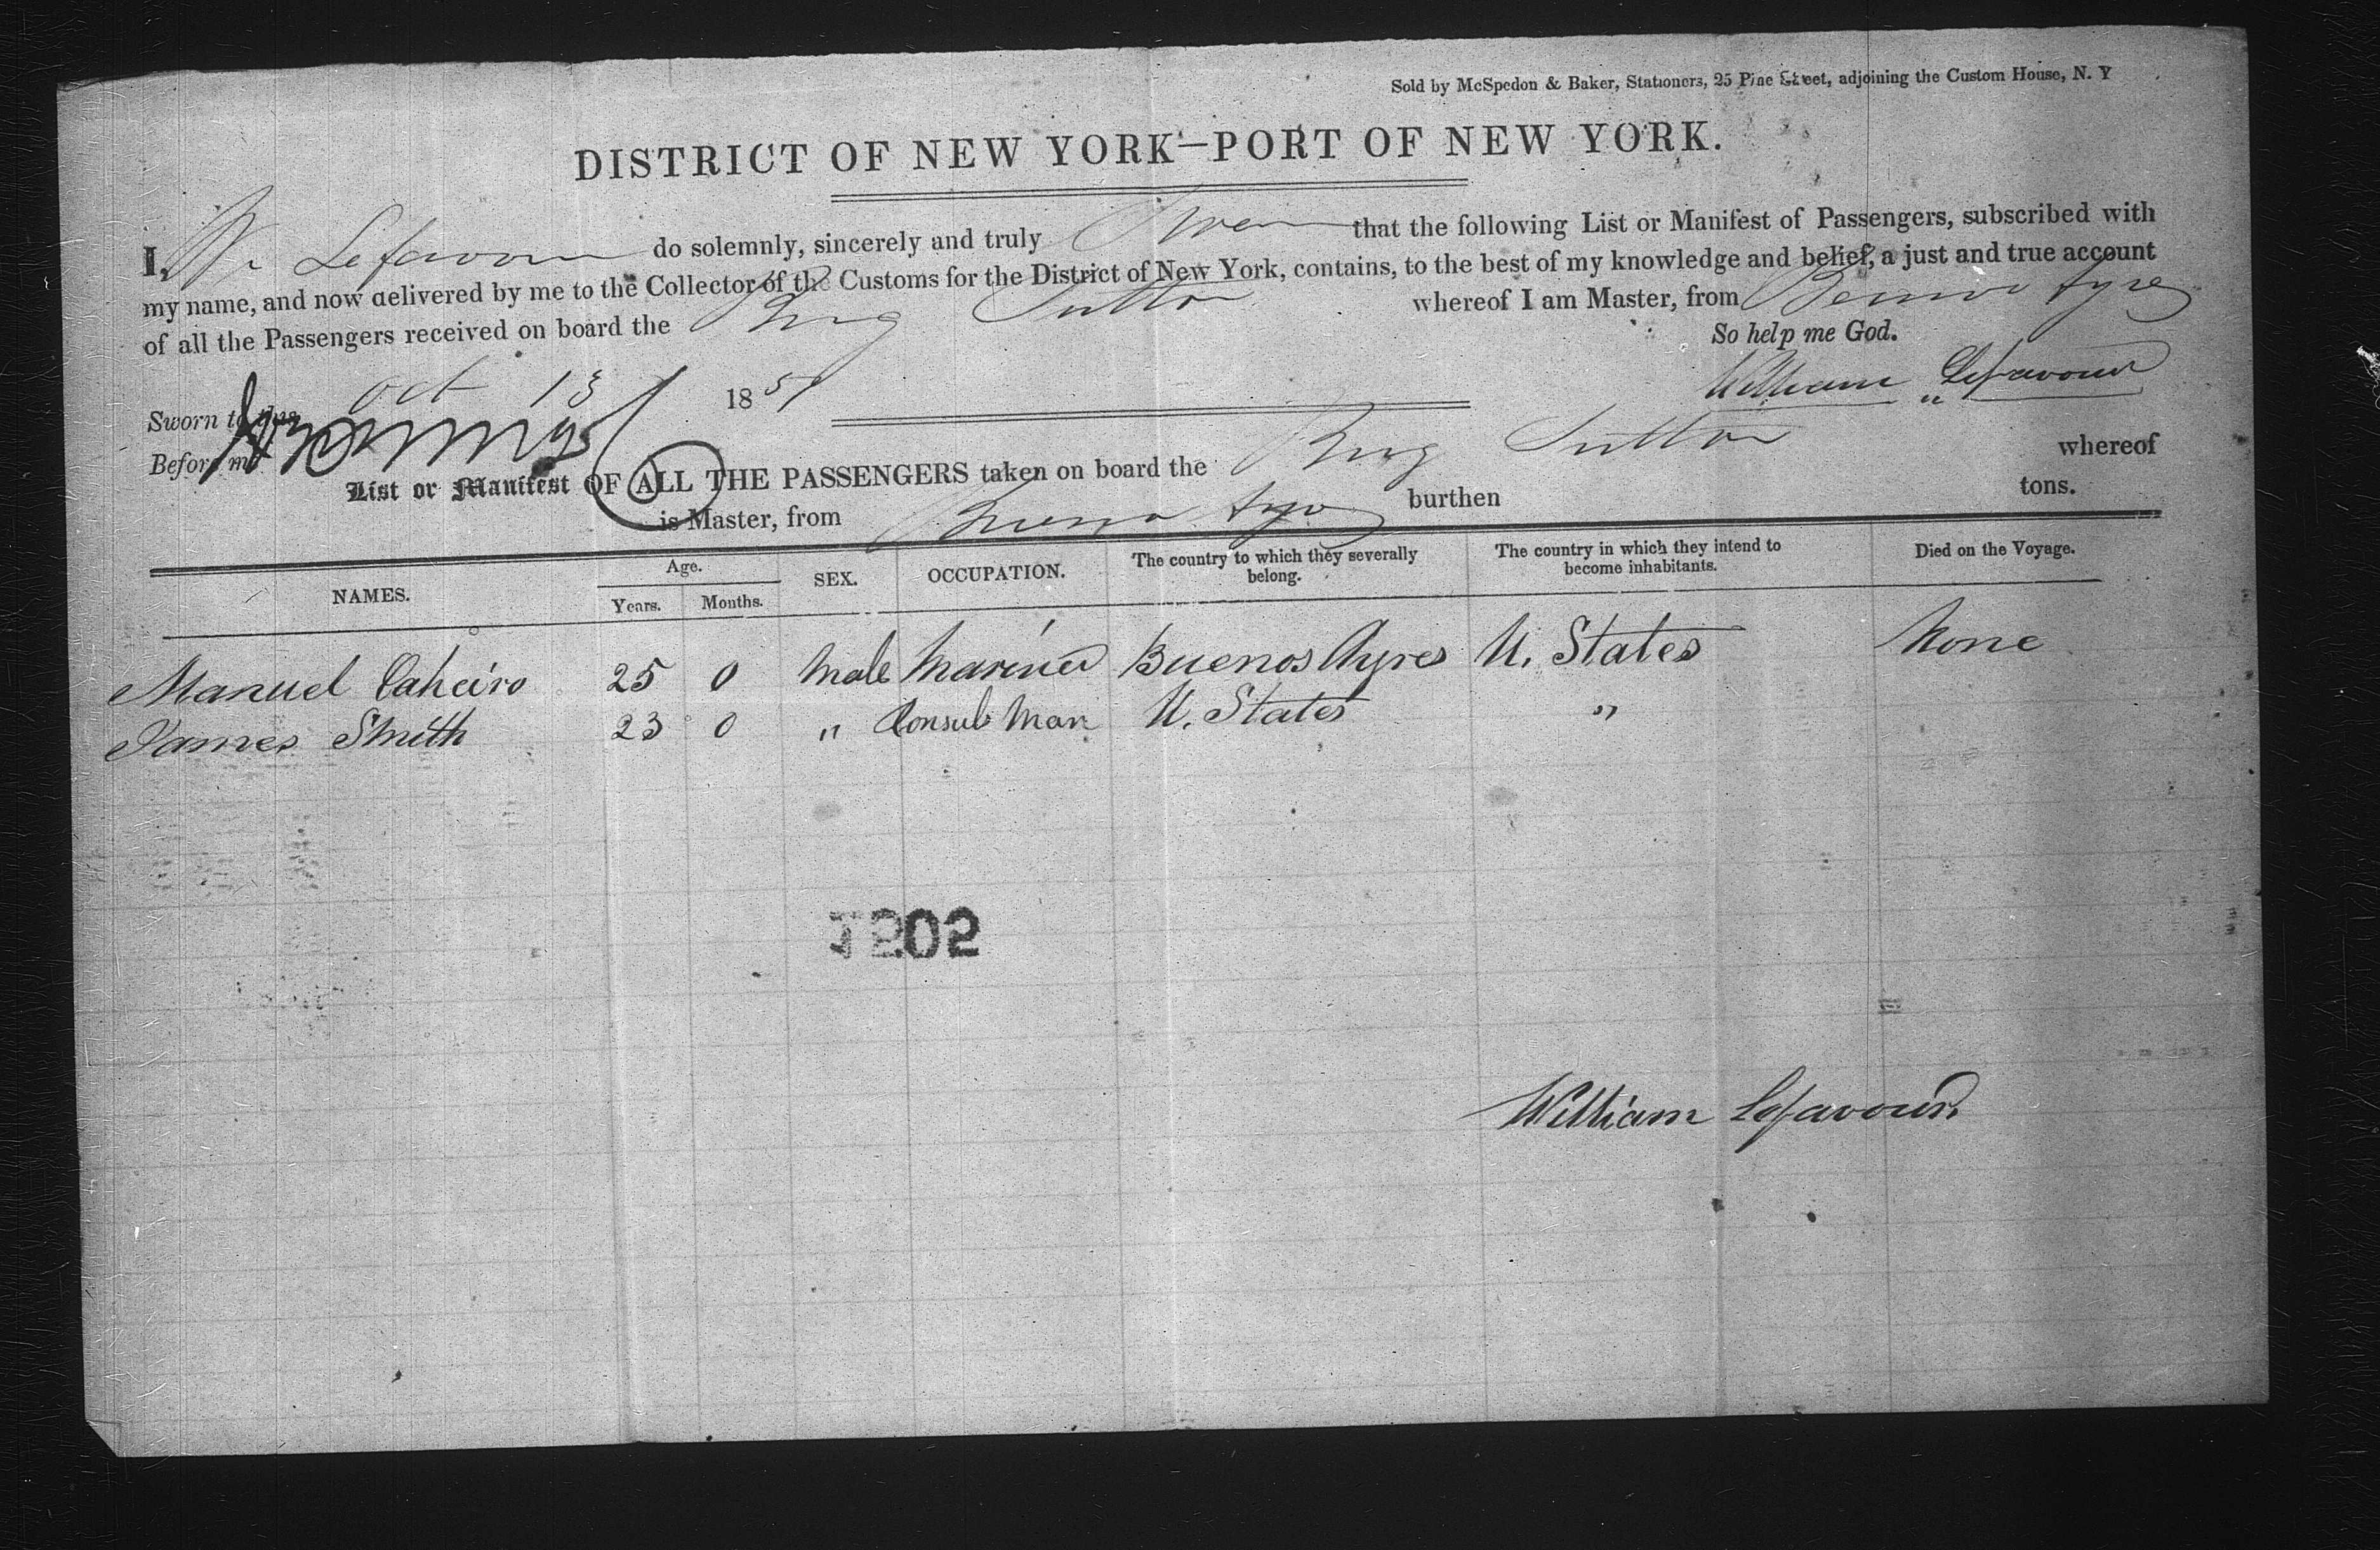 Sold by McSpedon & Baker, Stationers, 25 Pine Street, adjoining the Custom House, N. Y
DISTRICT OF NEW YORK—PORT OF NEW YORK.
I, Wm Lefavour do solemnly, sincerely and truly Swear that the following List or Manifest of Passengers, subscribed with
my name, and now delivered by me to the Collector of the Customs for the District of New York, contains, to the best of my knowledge and belief, a just and true account
of all the Passengers received on board the Brig Sutton whereof I am Master, from Buenos Ayres
So help me God.
Sworn to this Oct 13 1851
William Lefavour
Before me
List or Manifest OF ALL THE PASSENGERS taken on board the Brig Sutton whereof
is Master, from Buenos Ayres burthen tons.
NAMES. Age. Years. Months. SEX. OCCUPATION. The country to which they severally belong. The country in which they intend to become inhabitants. Died on the Voyage.
Manuel 25 0 Male Mariner Buenos Ayres U. States None
James Smith 23 0 " Consul Man U. States "
William Lefavour